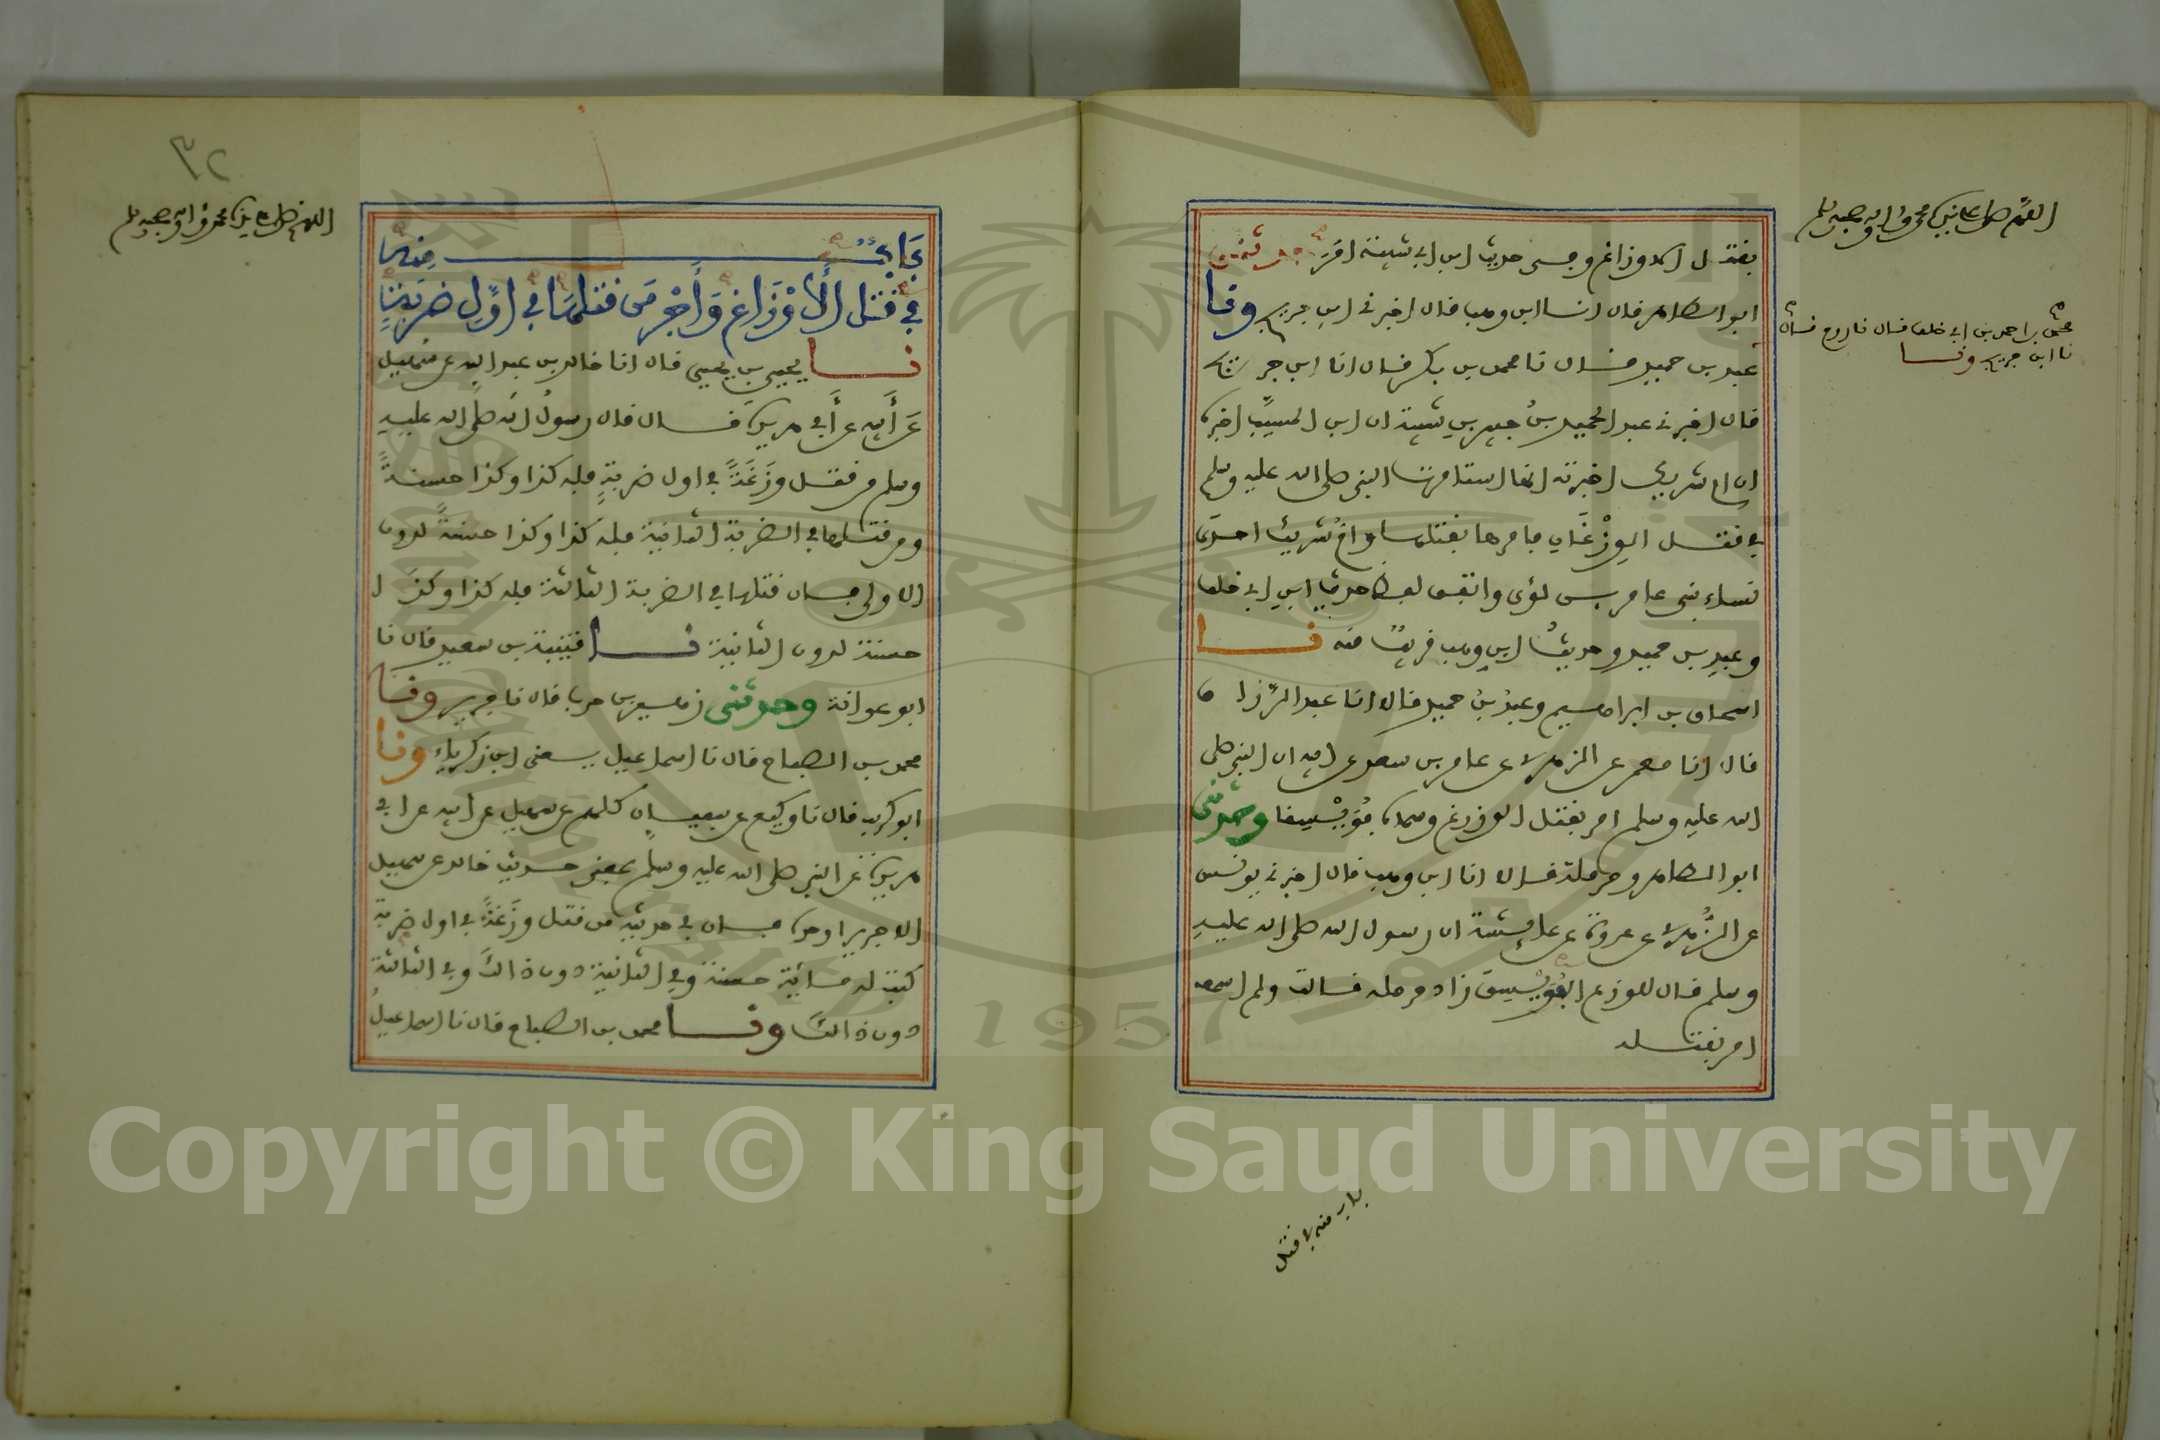 اللهم صل على نبيك محمد وآله وصحبه وسلم
بقتل الاوزاغ وفى حديث ابن ابي شيبة امر حدثنى
ابو الطاهر قال انا ابن وهب قال اخبرني ابن جريج ونا
محمد بن احمد بن ابي خلف قال نا روح قال
نا ابن جريج ونا
عبد بن حميد قال نا محمد بن بكر قال انا ابن جريج
قال اخبرني عبد الحميد بن جبير بن شيبة ان ابن المسيب اخبره
ان ام شريك اخبرته انها استامرت النبي صلى الله عليه وسلم
في قتل الوزغان فامرها بقتلها وام شريك احدى
نساء بني عامر بن لؤي واتفق لفظ حديث ابن ابي خلف
وعبد بن حميد وحديث ابن وهب قريب منه نا
اسحاق بن ابراهيم وعبد بن حميد قالا انا عبد الرزاق
قال انا معمر عن الزهري عن عامر بن سعد عن ابيه ان النبي صلى
الله عليه وسلم امر بقتل الوزغ وسماه فويسقا وحدثني
ابو الطاهر وحرملة قالا انا ابن وهب قال اخبرني يونس
عن الزهري عن عروة عن عايشة ان رسول الله صلى الله عليه
وسلم قال للوزغ الفويسق زاد حرملة قالت ولم اسمعه
امر بقتله
باب منه في قتل
٣٢
اللهم صل على نبيك محمد وآله وصحبه وسلم
باب منه
في قتل الاوزاغ واجر من قتلها في اول ضربة
نا يحيى بن يحيى قال انا خالد بن عبد الله عن سهيل
عن ابيه عن ابي هريرة قال قال رسول الله صلى الله عليه
وسلم من قتل وزغة في اول ضربة فله كذا وكذا حسنة
ومن قتلها في الضربة الثانية فله كذا وكذا حسنة لدون
الاولى فان قتلها في الضربة الثالثة فله كذا وكذا
حسنة لدون الثانية نا قتيبة بن سعيد قال نا
ابو عوانة وحدثني زهير بن حرب قال نا جرير ونا
محمد بن الصباح قال نا اسماعيل يعني ابن زكرياء ونا
ابو كريب قال نا وكيع عن سفيان كلهم عن سهيل عن ابيه عن ابي
هريرة عن النبي صلى الله عليه وسلم بمعنى حديث خالد عن سهيل
الا جريرا وحده فان في حديثه من قتل وزغة في اول ضربة
كتبت له مائة حسنة وفي الثانية دون ذالك وفي الثالثة
دون ذالك ونا محمد بن الصباح قال نا اسماعيل
1957
Copyright © King Saud University